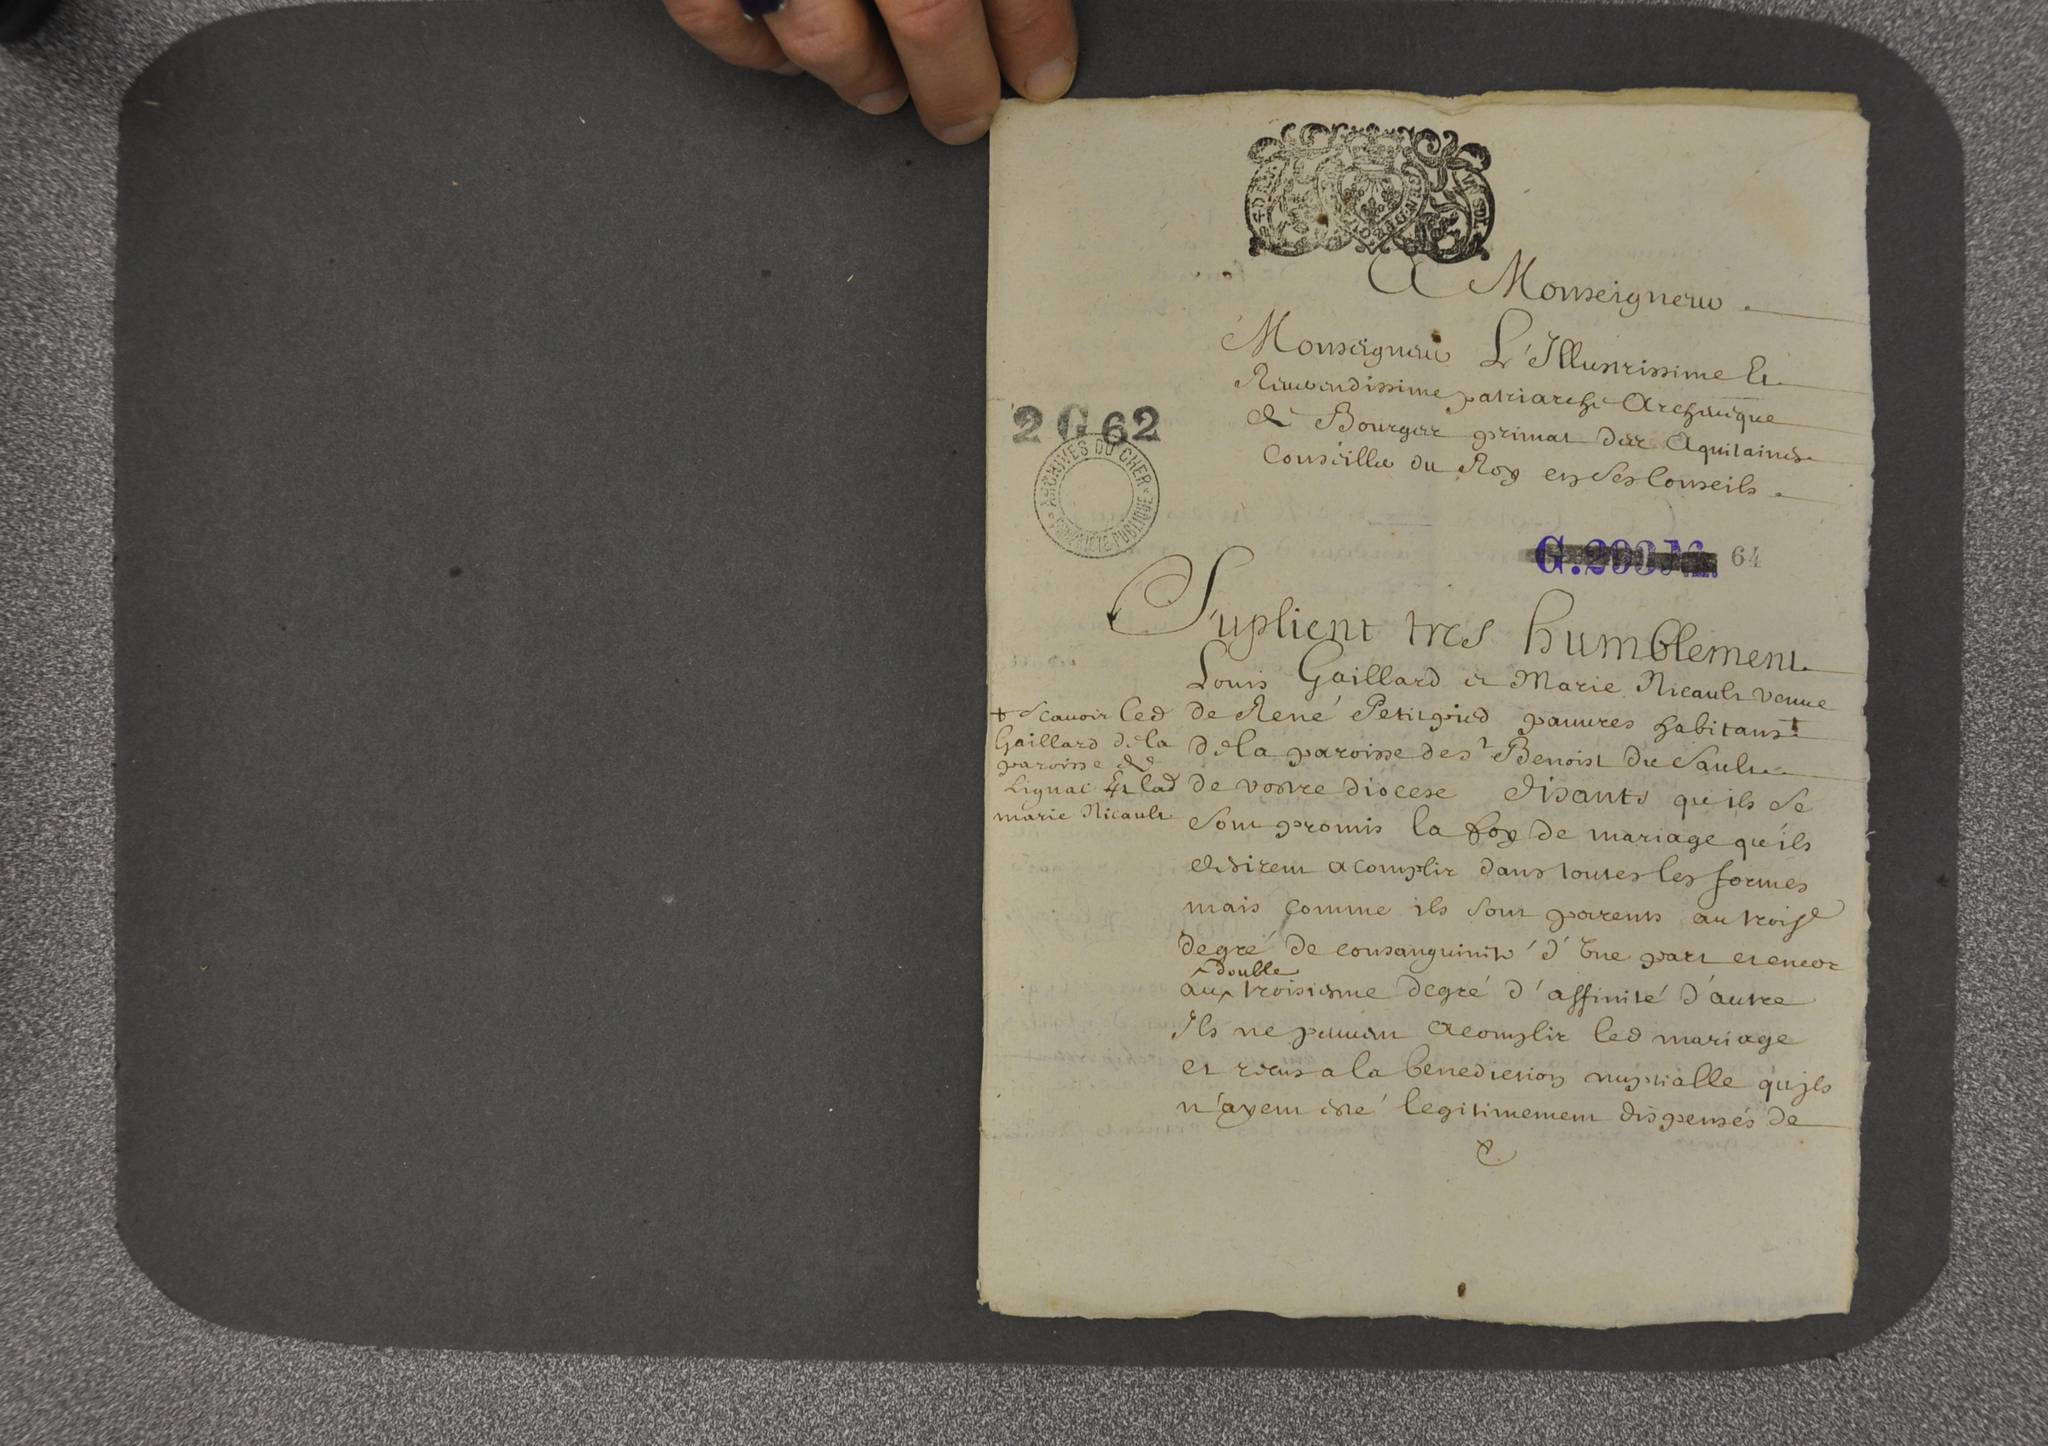 A Monseigneur
Monseigneur L'Illustrissime Et
Reuerendissime patriarche Archeuêque
de Bourges primat des Aquitaines
Conseiller du Roy en ses Conseils
2 G 62
ARCHIVES DU CHER
PROPRIÉTÉ PUBLIQUE
G. 293
64
Suplient tres humblement
Louis Gaillard et Marie Nicault veuue
de René Petitpied pauures habitans +
de la paroisse de st Benoist du Sault
de vostre diocese disants qu'ils se
sont promis la foy de mariage qu'ils
desirent acomplir dans toutes les formes
mais comme ils sont parents au troise
degré de consanguinité d'Vne part et encor
double
au troisiesme degré d'affinité d'autre
Ils ne peuuent acomplir led mariage
et receus a la benediction nuptialle qu'ils
n'ayent esté legitimement dispensés de
+ Scauoir led
Gaillard de la
paroisse de
Lignac Et lad
marie Nicault